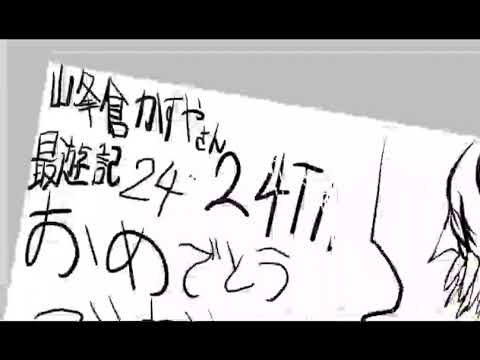 山峰倉かずやさん
最遊記24 24Th
おめでとう